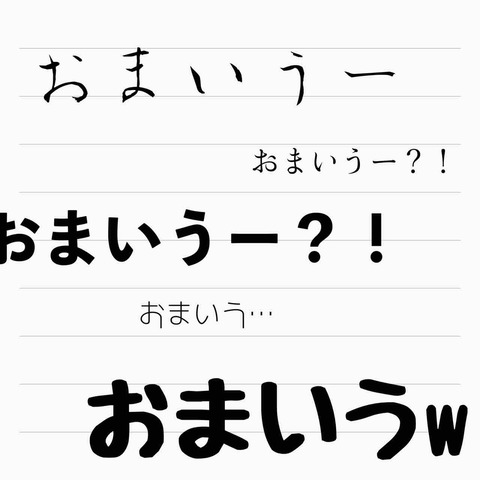 おまいうー
おまいうー？！
おまいうー？！
おまいう…
おまいうw